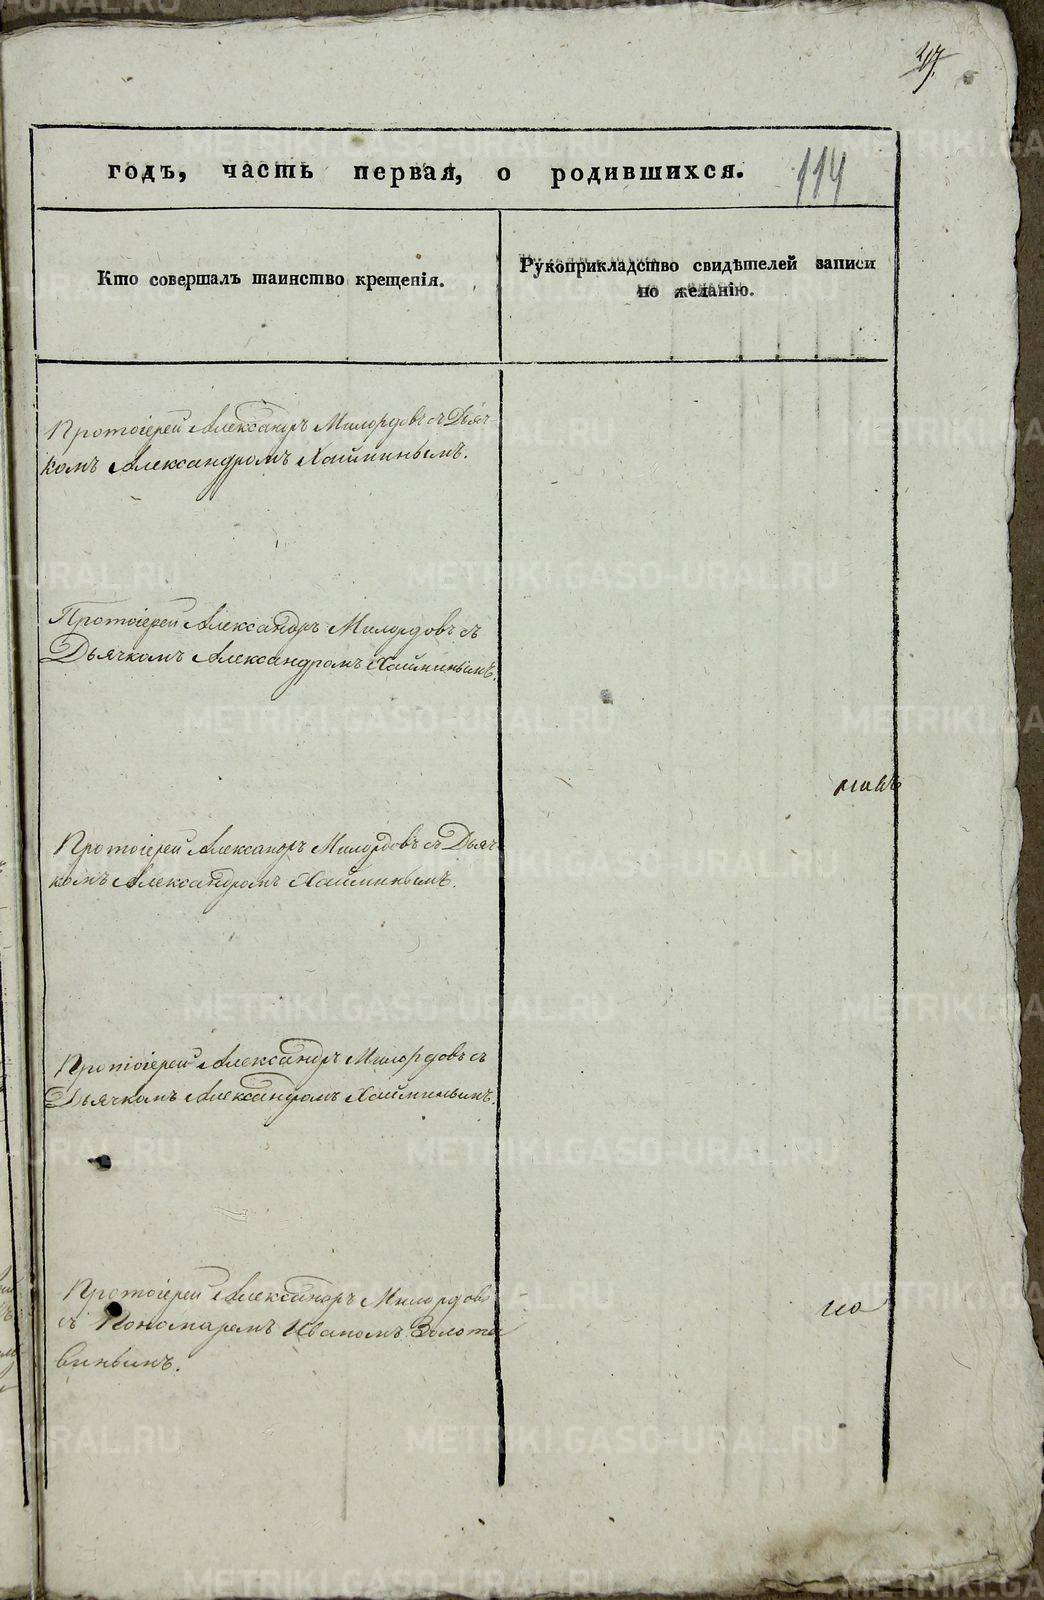 годъ, часть первая, о родившихся.
114
Кто совершалъ таинство крещенія.
Рукоприкладство свидѣтелей записи
по желанію.
Протоіерей Александръ Милордовъ съ Дьяч-
комъ Александромъ Хайминымъ.
Протоіерей Александръ Милордовъ съ
Дьячкомъ Александромъ Хайминымъ.
Протоіерей Александръ Милордовъ съ Дьяч
комъ Александромъ Хайминымъ.
Протоіерей Александръ Милордовъ съ
Дьячкомъ Александромъ Хайминымъ.
Протоіерей Александръ Милордовъ
съ Пономаремъ Иваномъ Золота
винымъ.
по
METRIKI.GASO-URAL.RU